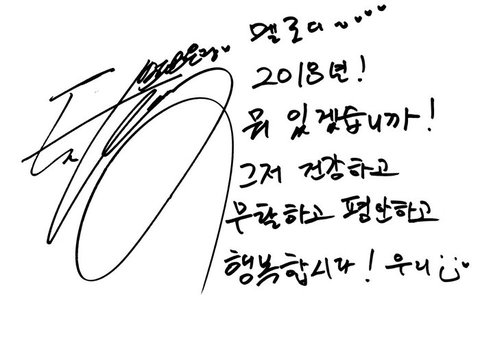 멜로디~♥♥♥♥
2018년!
뭐 있겠습니까!
그저 건강하고
무탈하고 평안하고
행복합시다! 우리